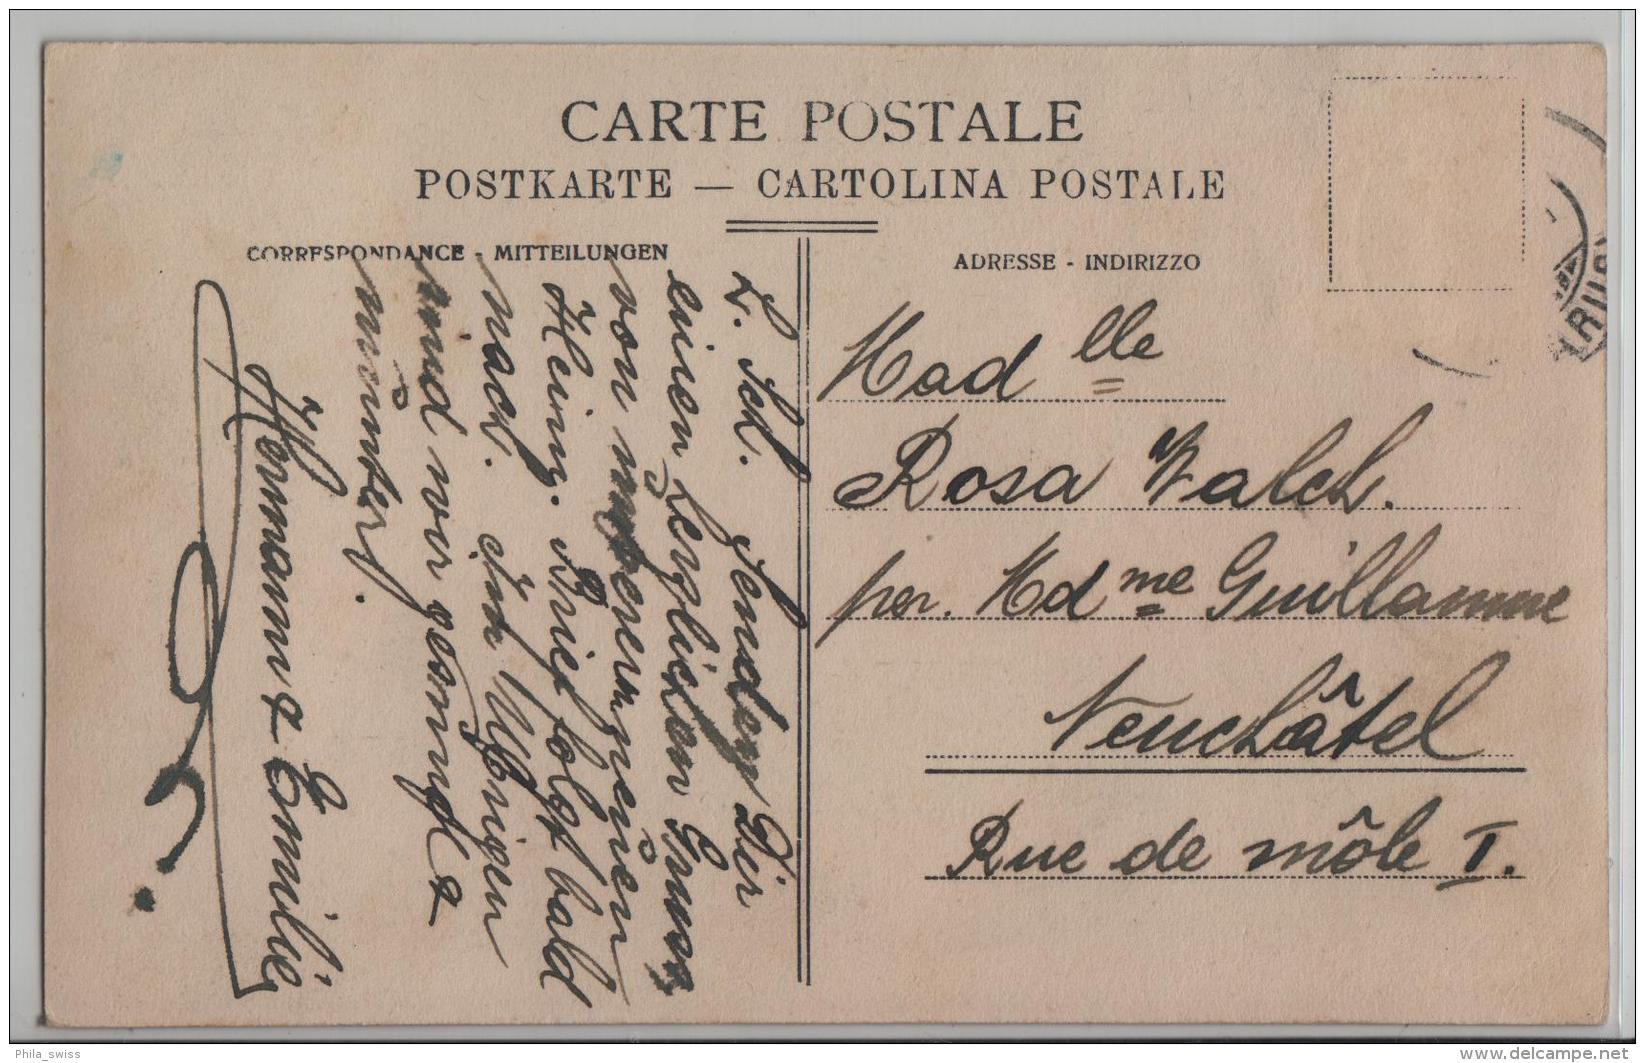 CARTE POSTALE
POSTKARTE — CARTOLINA POSTALE
CORRESPONDANCE - MITTEILUNGEN
ADRESSE - INDIRIZZO
L. Sch. Senden Dir
einen herzlichen Gruss
von unserem neuen
Heim. Brief folgt bald
nach. Im Übrigen
sind wir gesund &
munter.
Hermann & Emilie
Madlle
Rosa Walch.
per. Mdme Guillaume
Neuchâtel
Rue de môle I.
Phila_swiss
www.delcampe.net